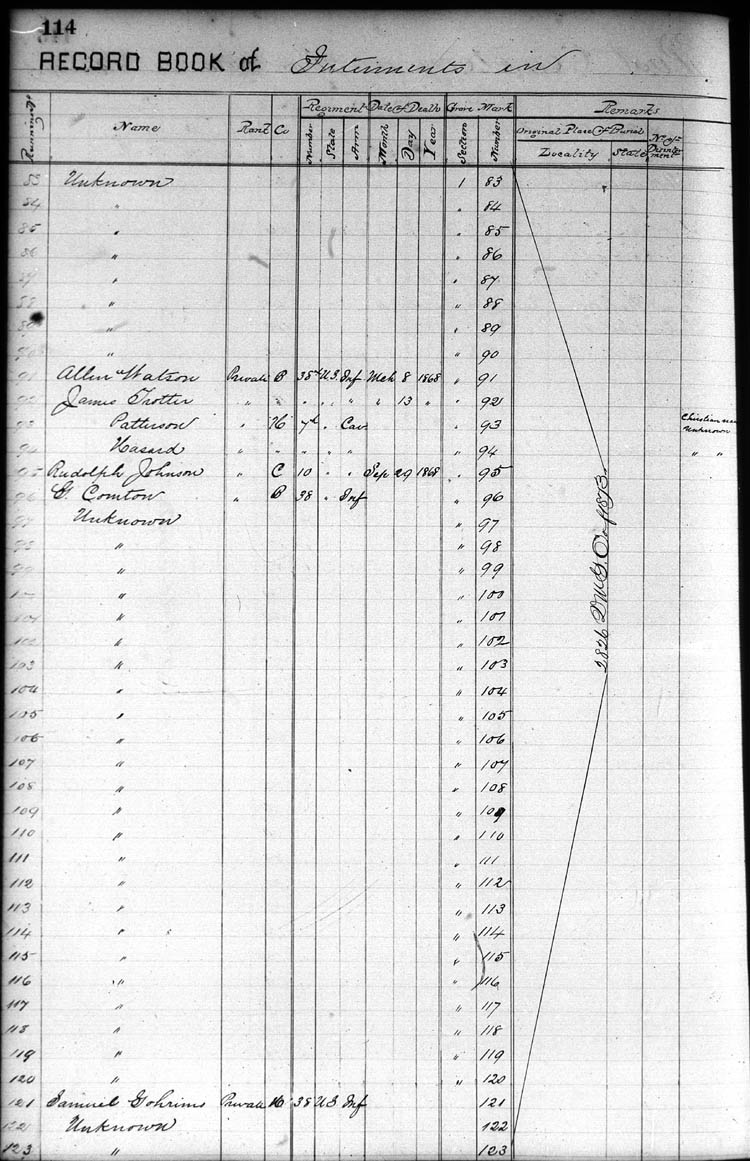 114
RECORD BOOK of Interments in
Regiment Date of Death Grave Mark Remarks
Name Rank Co Number State Arm Month Day Year Section Number Original Place of Burial
Locality State
83 Unknown 1 83
84 " " 84
85 " " 85
86 " " 86
87 " " 87
88 " " 88
89 " " 89
90 " " 90
91 Allen Watson Private B 38th U.S. Inf Mch 8 1868 " 91
92 James Trotter " " " " " " 13 " " 92
93 Patterson " H 7th " Cav " 93 Christian name Unknown
94 Hasard " " " " " " 94 " "
95 Rudolph Johnson " C 10 " " Sep 29 1868 " 95
96 G. Comton " B 38 " Inf " 96
97 Unknown " 97
98 " " 98
99 " " 99
100 " " 100
101 " " 101
102 " " 102
103 " " 103
104 " " 104
105 " " 105
106 " " 106
107 " " 107
108 " " 108
109 " " 109
110 " " 110
111 " " 111
112 " " 112
113 " " 113
114 " " 114
115 " " 115
116 " " 116
117 " " 117
118 " " 118
119 " " 119
120 " " 120
121 Samuel Private H 38 U.S. Inf 121
122 Unknown 122
123 " 123
2826 1873